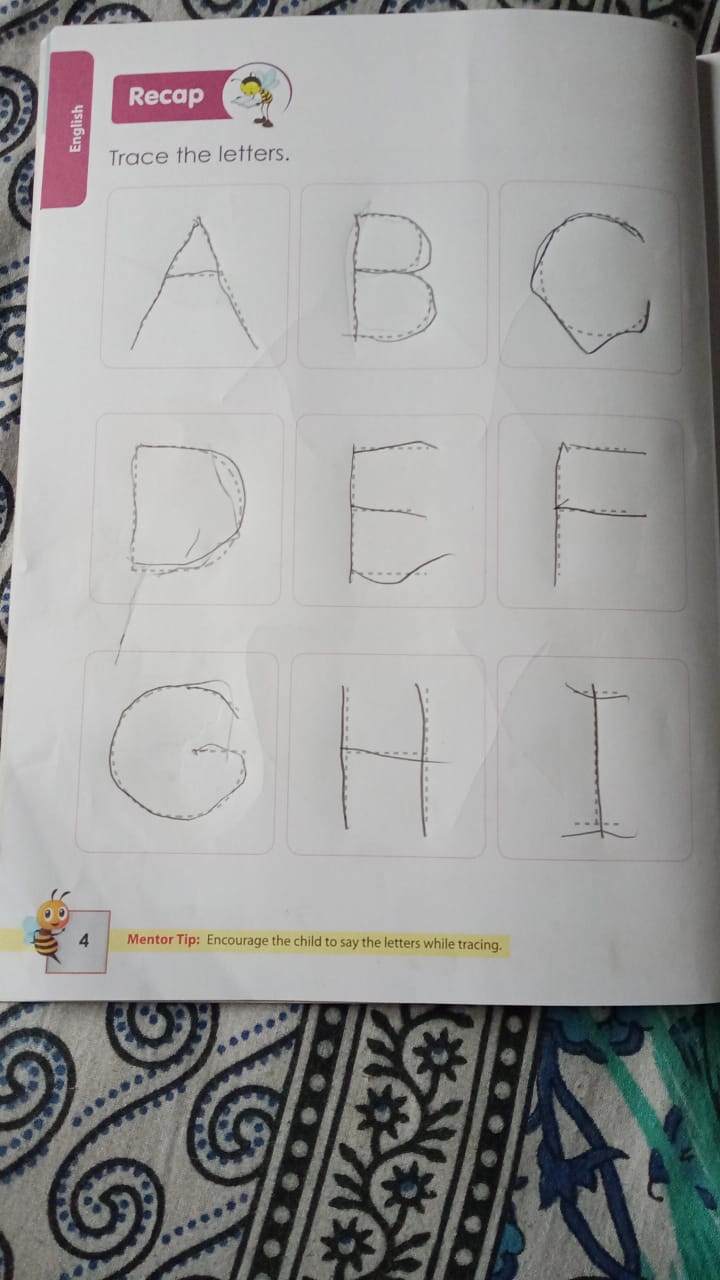 English
Recap
Trace the letters.
A B C
D E F
G H I
4
Mentor Tip: Encourage the child to say the letters while tracing.